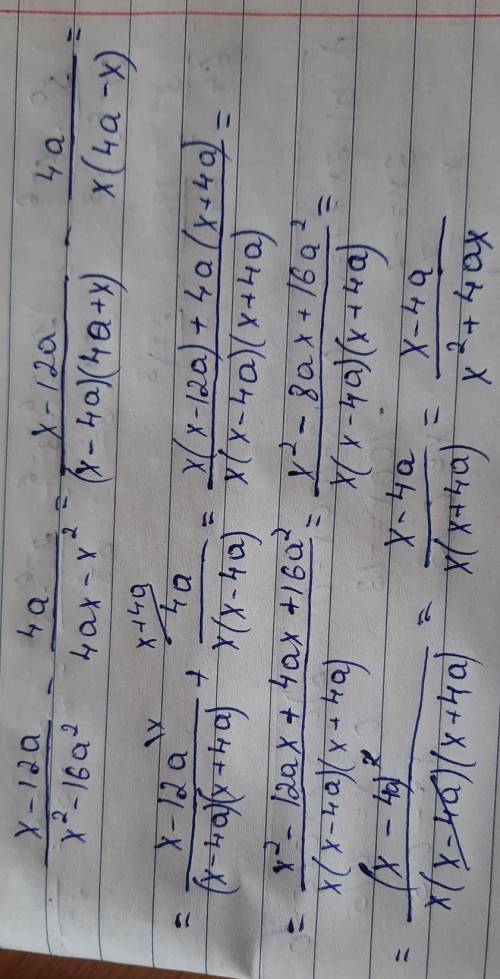 (x-12a)/(x²-16a²) - 4a/(4ax-x²) = (x-12a)/((x-4a)(4a+x)) - 4a/(x(4a-x)) =
= (x-12a)^{\x}/((x-4a)(x+4a)) + ^{x+4a/}4a/(x(x-4a)) = (x(x-12a)+4a(x+4a))/(x(x-4a)(x+4a)) =
= (x²-12ax+4ax+16a²)/(x(x-4a)(x+4a)) = (x²-8ax+16a²)/(x(x-4a)(x+4a)) =
= (x-4a)²/(x(x-4a)(x+4a)) = (x-4a)/(x(x+4a)) = (x-4a)/(x²+4ax)